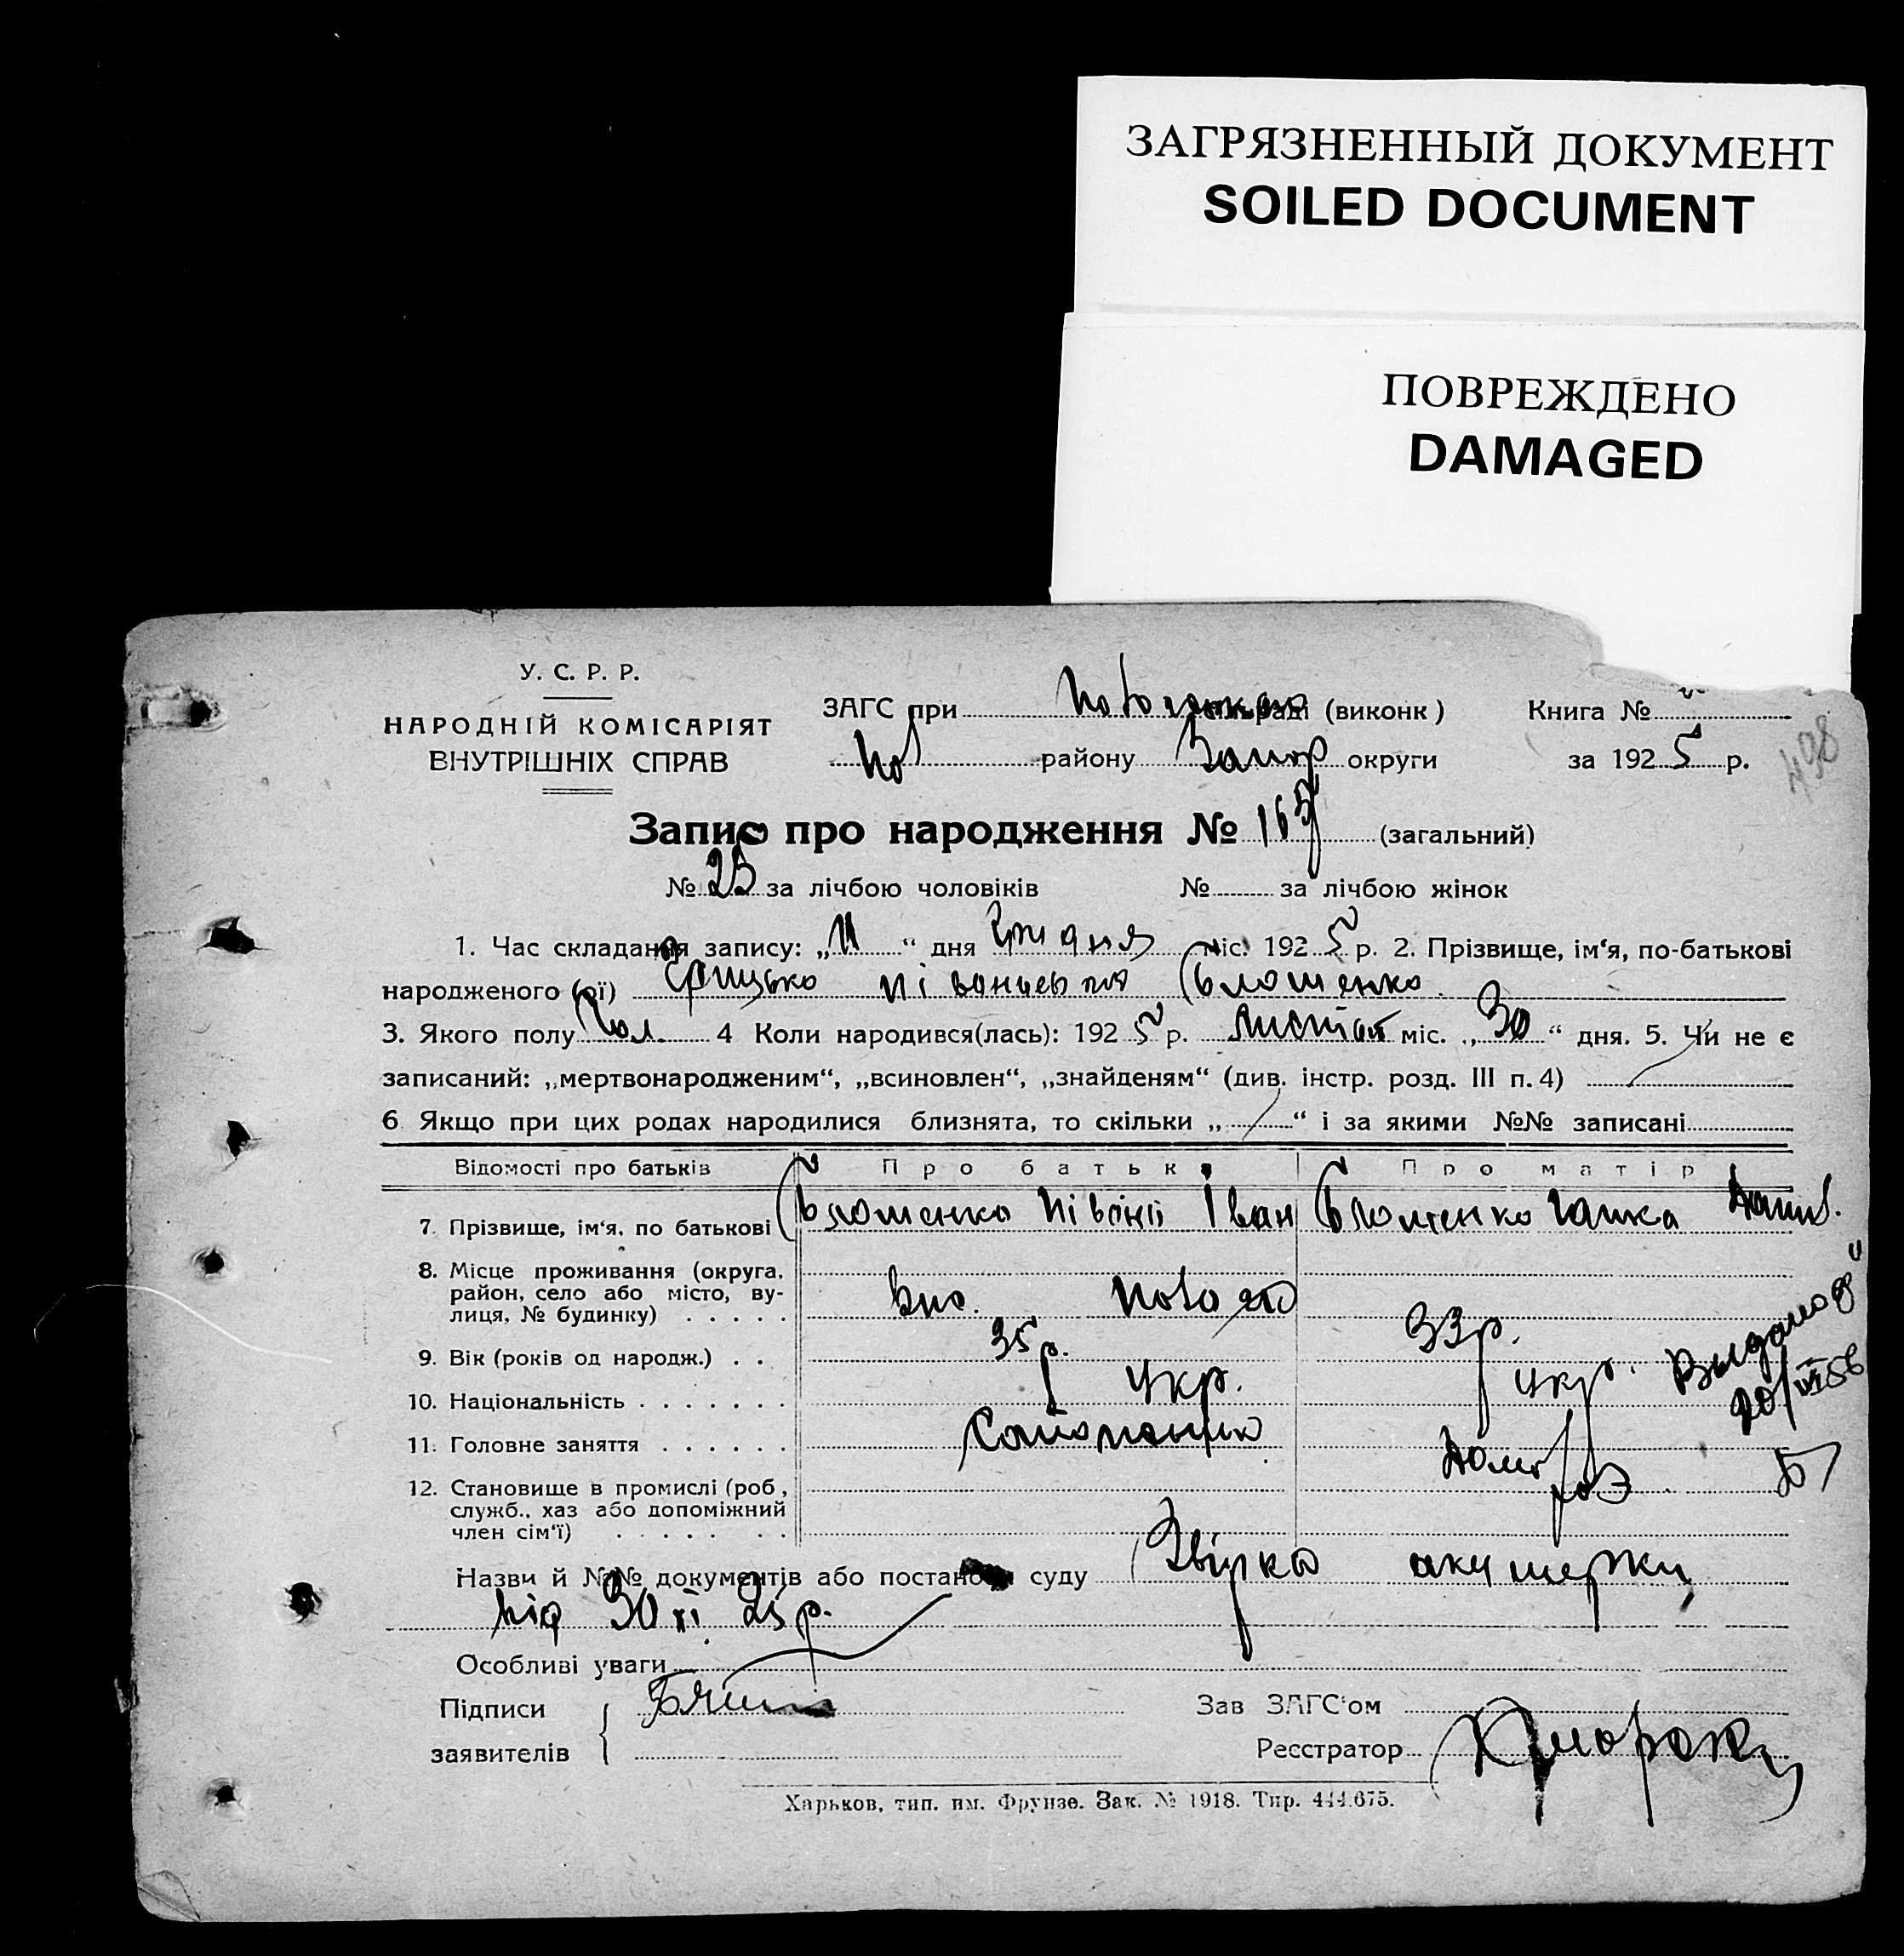 ЗАГРЯЗНЕННЫЙ ДОКУМЕНТ
SOILED DOCUMENT
ПОВРЕЖДЕНО
DAMAGED
У. С. Р. Р.
НАРОДНІЙ КОМІСАРІЯТ
ВНУТРІШНІХ СПРАВ
ЗАГС при (виконк)
Книга №
району Запор округи
за 1925 р.
498
Запис про народження № 165 (загальний)
№ 25 за лічбою чоловіків
№ за лічбою жінок
1. Час складання запису: „11“ дня Грудня міс. 1925 р. 2. Прізвище, ім‘я, по-батькові
народженого (ої) Грицько
3. Якого полу Чол. 4 Коли народився(лась): 1925 р. Листоп міс. „30“ дня. 5. Чи не є
записаний: „мертвонародженим“, „всиновлен“, „знайденям“ (див. інстр. розд. III п. 4)
6 Якщо при цих родах народилися близнята, то скільки „ “ і за якими №№ записані
Відомості про батьків
Про батька
Про матір
7. Прізвище, ім‘я, по батькові
Іван
8. Місце проживання (округа, район, село або місто, ву-
лиця, № будинку)
9. Вік (років од народж.)
35 р.
33 р.
10. Національність
Укр.
укр.
11. Головне заняття
12. Становище в промислі (роб.,
служб., хаз або допоміжний
член сім‘ї)
Назви й №№ документів або постанови суду акушерки
від 30 XI 25 р.
Особливі уваги
Підписи
заявителів
Зав ЗАГС‘ом
Реєстратор
Харьков, тип. им. Фрунзе. Зак. № 1918. Тир. 444.675.